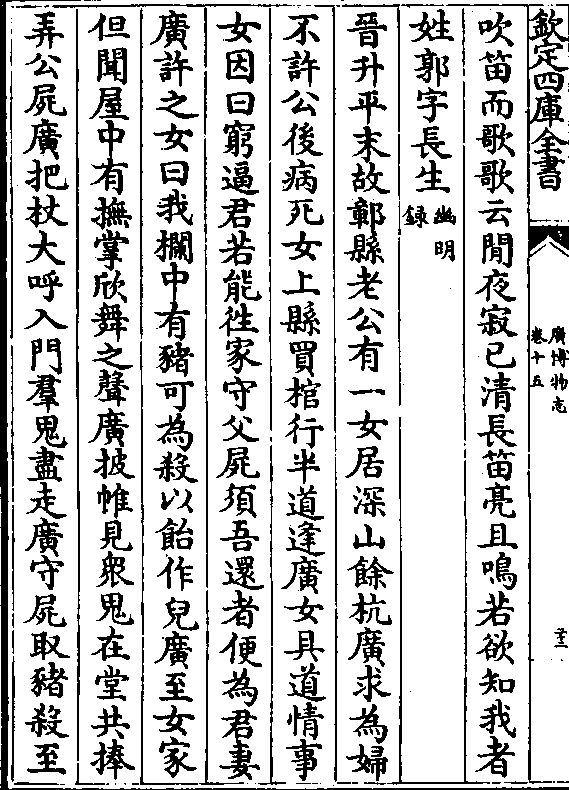 欽定四庫全書
廣博物志
卷十五
吹笛而歌歌云閒夜寂已清長笛亮且鳴若欲知我者
姓郭字長生幽明録
晉升平末故鄣縣老公有一女居深山餘杭廣求為婦
不許公後病死女上縣買棺行半道逢廣女具道情事
女因曰窮逼君若能徃家守父屍須吾還者便為君妻
廣許之女曰我欄中有豬可為殺以飴作兒廣至女家
但聞屋中有撫掌欣舞之聲廣披帷見衆鬼在堂共捧
弄公屍廣把杖大呼入門羣鬼盡走廣守屍取豬殺至